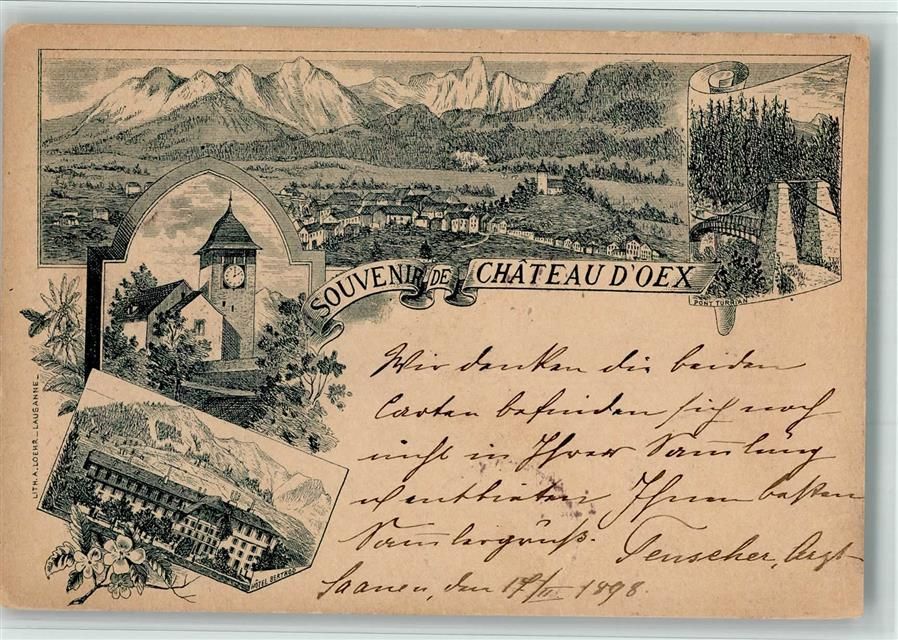 SOUVENIR DE CHÂTEAU D'OEX
PONT TURRIAN
LITH. A. LOEHR _ LAUSANNE _
HÔTEL BERTHOD
Wir denken die beiden
Carten befinden sich noch
nicht in Ihrer Sammlung
u entbieten Ihnen besten
Sammlergruß.
Teuscher, Arzt
Saanen, den 17/II 1898.